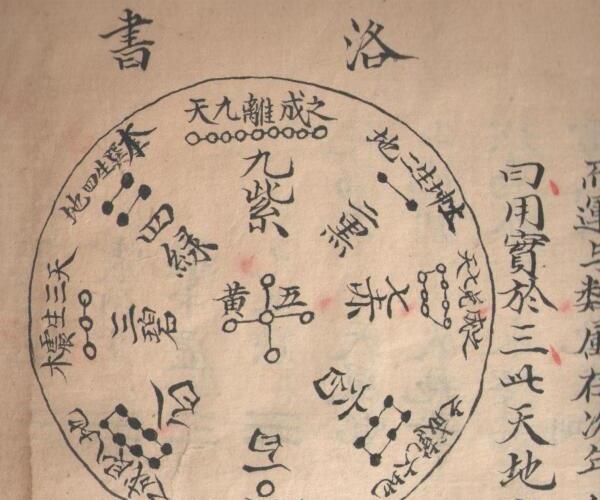 洛書
而運与類屬在次年
曰用實於三此天地
之成離九天
九紫
本坤生二地
二黑
天七兌成之
七赤
五黃
本巽生四地
四綠
木震生三天
三碧
六白
八白
一白